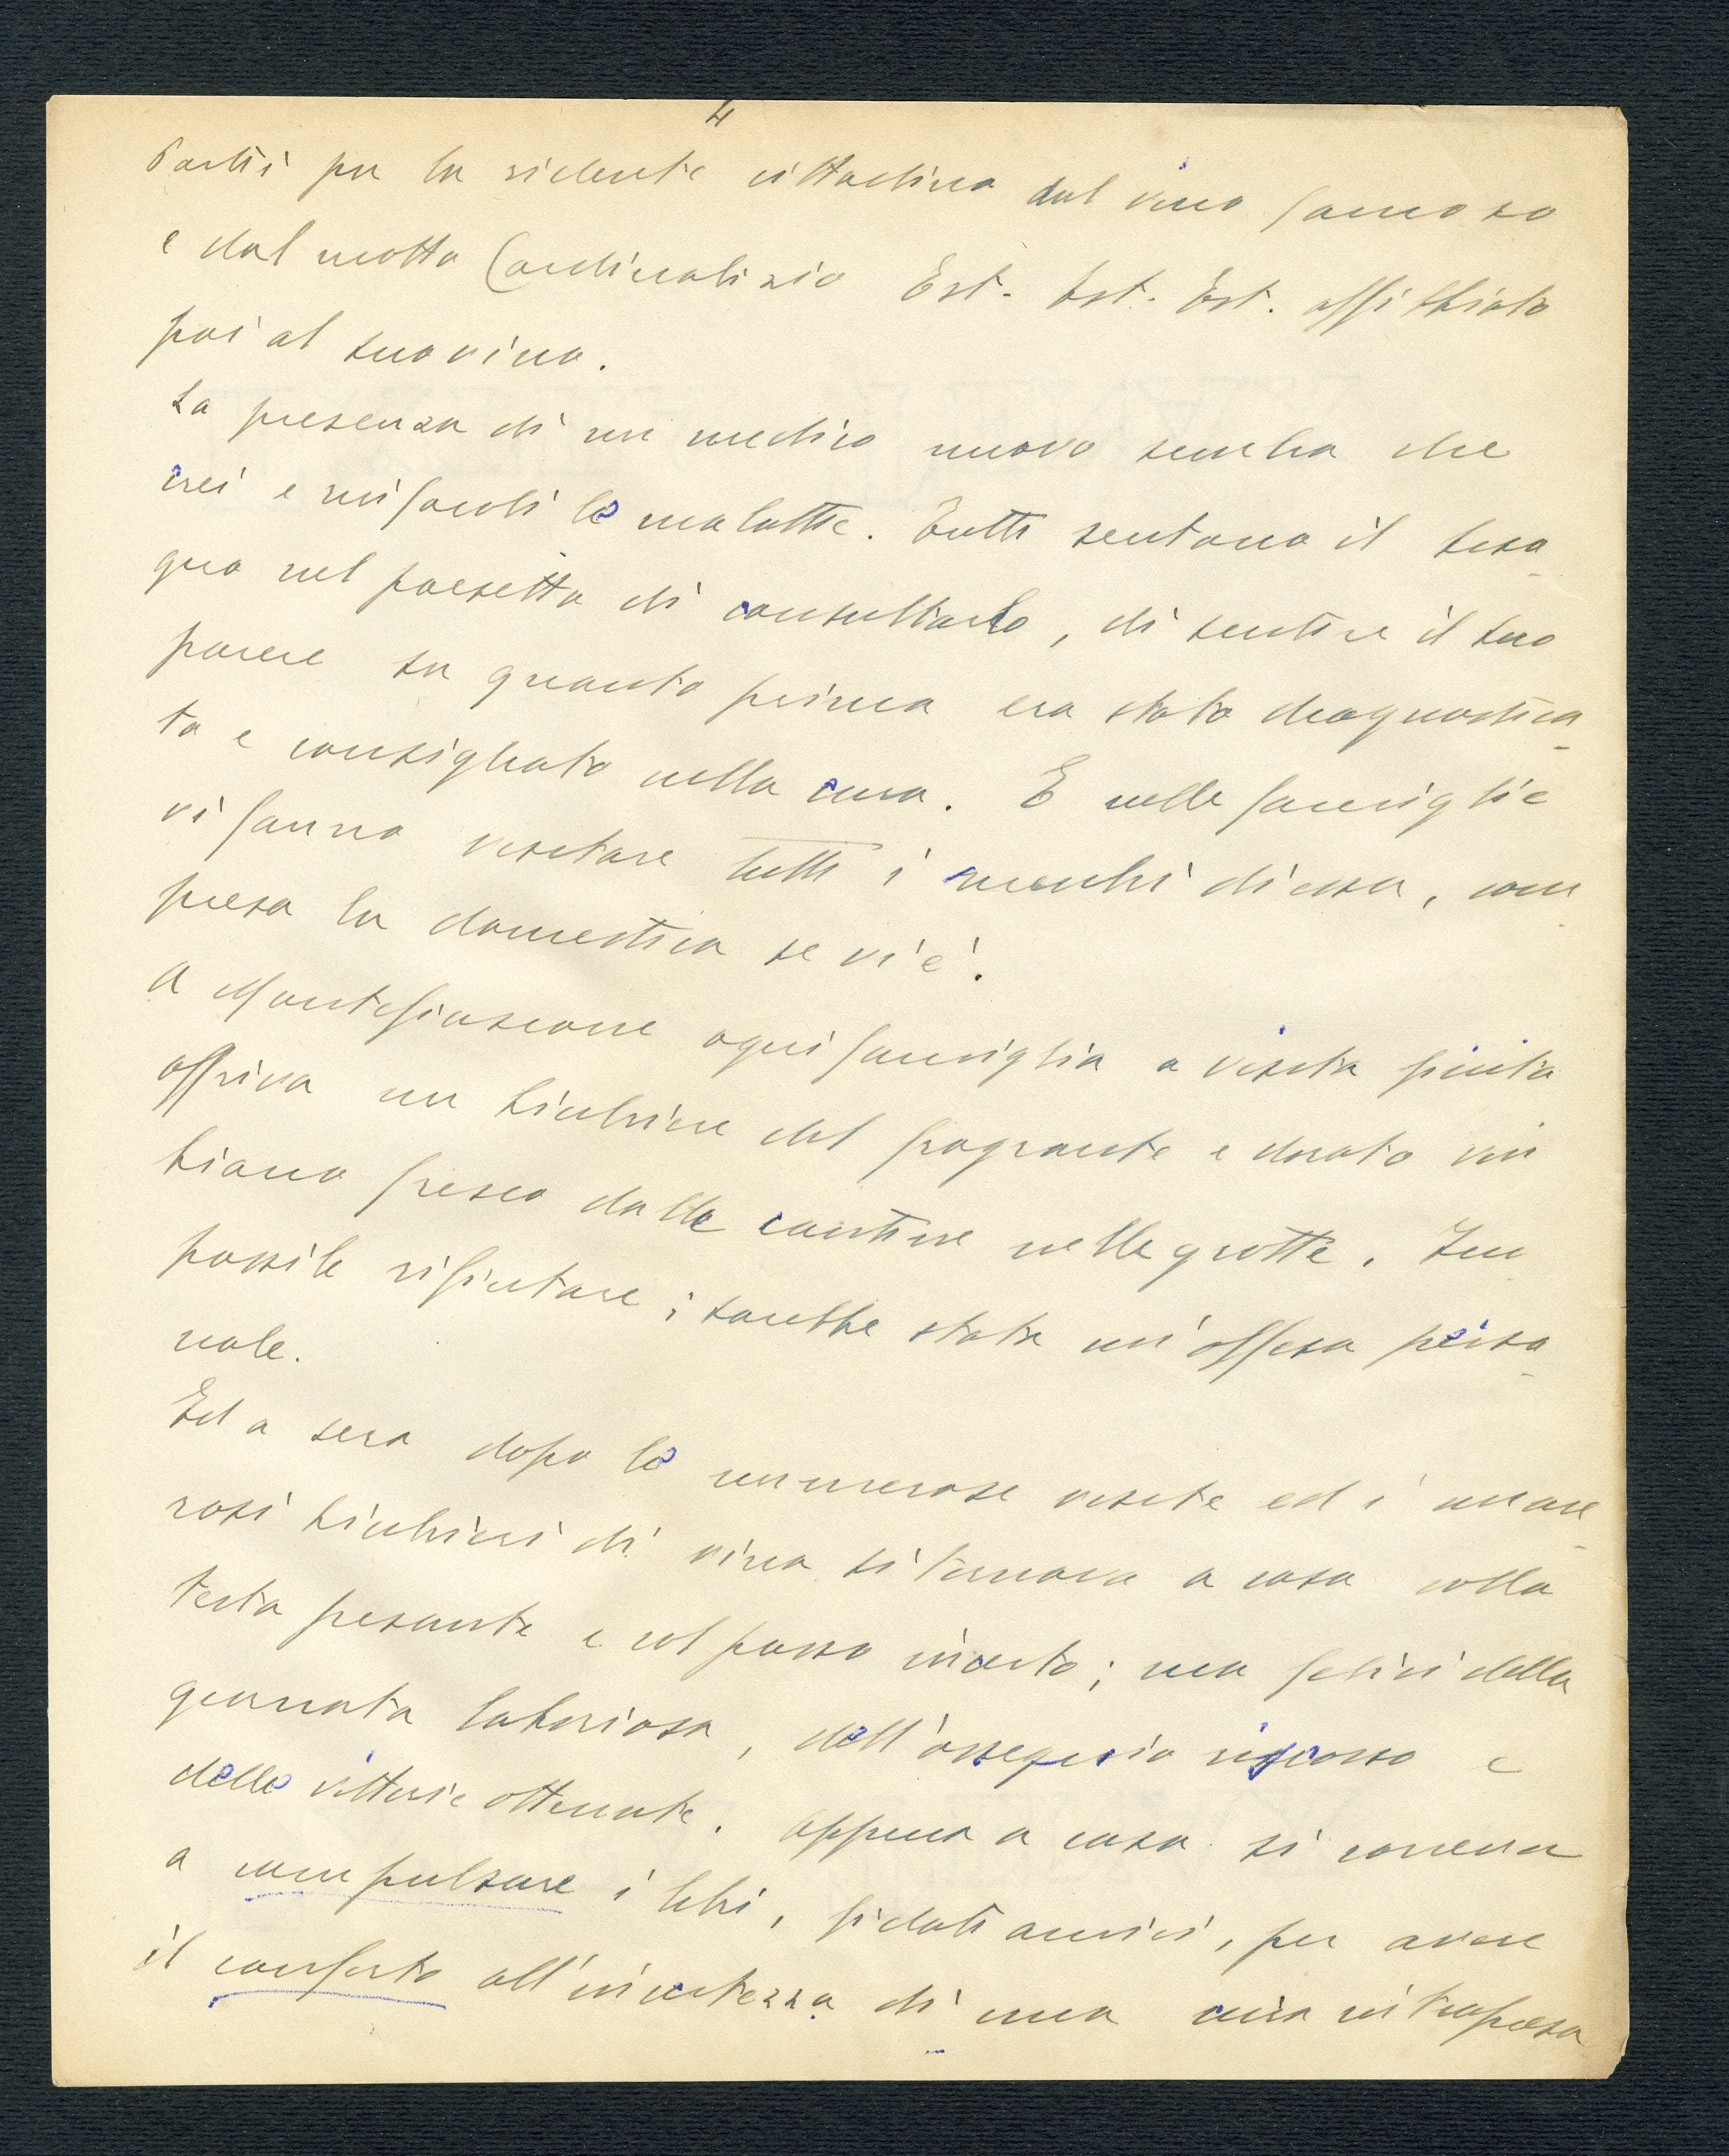 4
Partii per la ridente cittadina dal vino famoso
e dal motto Cardinalizio Est. Est. Est. affibbiato
poi al suo vino.
La presenza di un medico nuovo sembra che
crei e rinfocoli le malattie. Tutti sentono il biso
gno nel paesetto di consultarlo, di sentire il suo
parere su quanto prima era stato diagnostica
to e consigliato nella cura. E nelle famiglie
vi fanno visitare tutti i membri di essa, com
presa la domestica se vi è.
A Montefiascone ogni famiglia a visita finita
offriva un bicchiere del fragrante e dorato vin
biano fresco dalle cantine nelle grotte. Im
possibile rifiutare; sarebbe stata un'offesa perso
nale.
Ed a sera dopo le numerose visite ed i nume
rosi bicchieri di vino si tornava a casa colla
testa pesante e col passo incerto; ma felici della
giornata laboriosa, dell'ossequio riscosso e
delle vittorie ottenute. Appena a casa si correva
a compulsare i libri, fidati amici, per avere
il conforto all'incertezza di una cura intrapresa